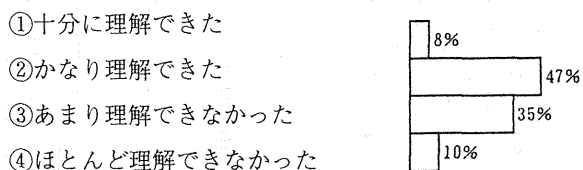 ①十分に理解できた
8%
②かなり理解できた
47%
③あまり理解できなかった
35%
④ほとんど理解できなかった
10%